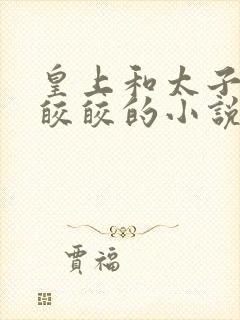 皇上和太子
皎皎的小説
賈福